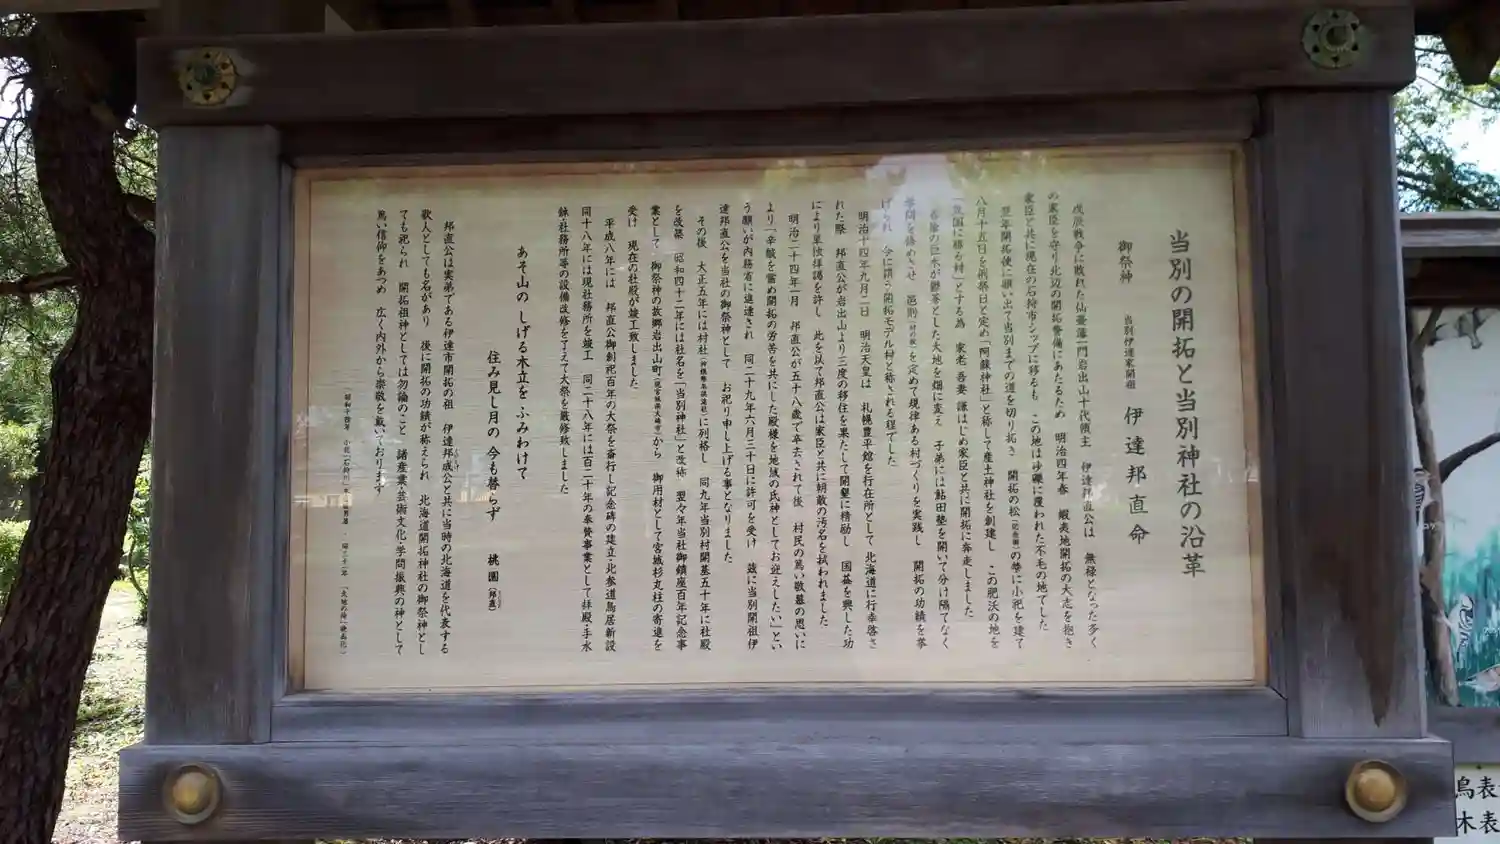 当別の開拓と当別神社の沿革
御祭神 当別伊達家開祖 伊達邦直命
戊辰戦争に敗れた仙臺藩一門岩出山十代領主 伊達邦直公は 無禄となった多く
の家臣を守り北辺の開拓警備にあたるため 明治四年春 蝦夷地開拓の大志を抱き
家臣と共に現在の石狩市シップに移るも この地は砂礫に覆われた不毛の地でした
翌年開拓使に願い出て当別までの道を切り拓き 開拓の松の幣に小祀を建て
八月十五日を例祭日と定め「阿蘇神社」と称して産土神社を創建し この肥沃の地を
とする為 家老 吾妻 謙はじめ家臣と共に開拓に奔走しました
の巨木が鬱蒼とした大地を畑に変え 子弟には鮎田塾を開いて分け隔てなく
学問を修めさせ 邑則を定めて規律ある村づくりを実践し 開拓の功績を挙
げられ 今に謂う開拓モデル村と称される程でした
明治十四年九月二日 明治天皇は 札幌豊平館を行在所として 北海道に行幸啓さ
れた際 邦直公が岩出山より三度の移住を果たして開墾に精励し 国基を興した功
により単独拝謁を許し 此を以て邦直公は家臣と共に朝敵の汚名を拭われました
明治二十四年一月 邦直公が五十八歳で卒去されて後 村民の篤い敬慕の思いに
より「辛酸を嘗め開拓の労苦を共にした殿様を地域の氏神としてお迎えしたい」とい
う願いが内務省に達達され 同二十九年六月三十日に許可を受け 茲に当別開祖伊
達邦直公を当社の御祭神として お祀り申し上げる事となりました
その後 大正五年には村社に列格し 同九年当別村開基五十年に社殿
を改築 昭和四十二年には社名を「当別神社」と改称 翌々年当社御鎮座百年記念事
業として 御祭神の故郷岩出山町から 御用材として宮城杉丸柱の寄進を
受け 現在の社殿が竣工致しました
平成八年には 邦直公御創祀百年の大祭を斎行し記念碑の建立・北参道鳥居新設
同十八年には現社務所を竣工 同二十八年には百二十年の奉賛事業として拝殿・手水
舎・社務所等の設備改修を了えて大祭を厳修致しました
あそ山の しげる木立を ふみわけて
住み見し月の 今も替らず 桃園(邦直)
邦直公は実弟である伊達市開拓の祖 伊達邦成公と共に当時の北海道を代表する
歌人としても名があり 後に開拓の功績が称えられ 北海道開拓神社の御祭神とし
ても祀られ 開拓祖神としては勿論のこと 諸産業・芸術文化・学問振興の神として
篤い信仰をあつめ 広く内外から崇敬を戴いております
鳥表
木表